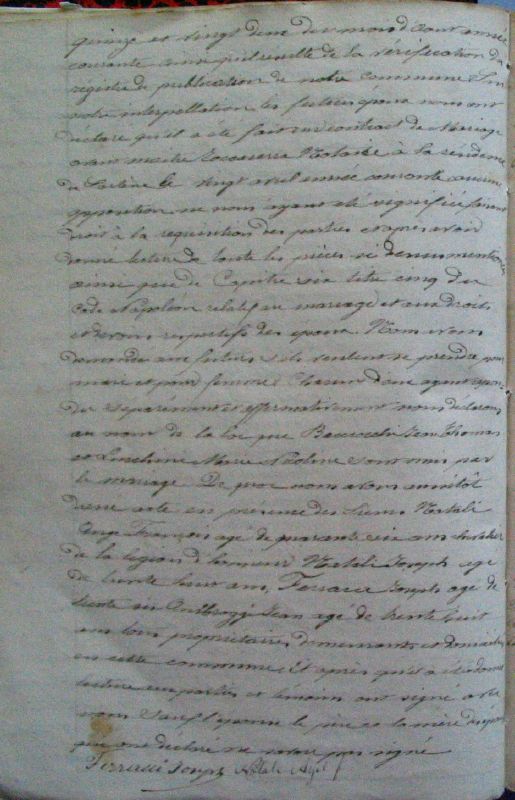 quinze et vingt deux du mois d'aout année
courante ainsi qu'il résulte de la vérification du
registre de publication de notre commune Sur
notre interpellation les futurs époux nous ont
déclaré qu'il a été fait un contrat de Mariage
avant maitre Notaire à la résidence
de Sartène le vingt avril année courante aucune
opposition ne nous ayant été signifiée faisant
droit à la requisition des parties et après avoir
donné lecture de toute les pièces ci dénommentionées
ainsi que du Chapitre six titre cinq du
Code Napoléon relatif au mariage et aux droits
et devoirs respectifs des époux. Nous avons
demandé aux futurs s'ils veulent se prendre pour
mari et pour femme Chacun d'eux ayant repon
du séparément et affirmativement nous déclarons
au nom de la loi que Jean Thomas
et Marie sont unis par
le mariage De quoi nous avons aussitôt
dressé acte en présence des Sieurs Natali
Ange François agé de quarante six ans chevalier
de la légion d'honneur Natali Joseph agé
de trente huit ans, Ferracci Joseph agé de
trente six Jean agé de trente huit
ans tous propriétaires demeurants et domiciliés
en cette commune Et après qu'il a été donné
lecture aux parties et témoins ont signé avec
nous Sauf l'épouse le père et la mère
que ont déclaré ne savoir pas signé
Ferracci Joseph Natali